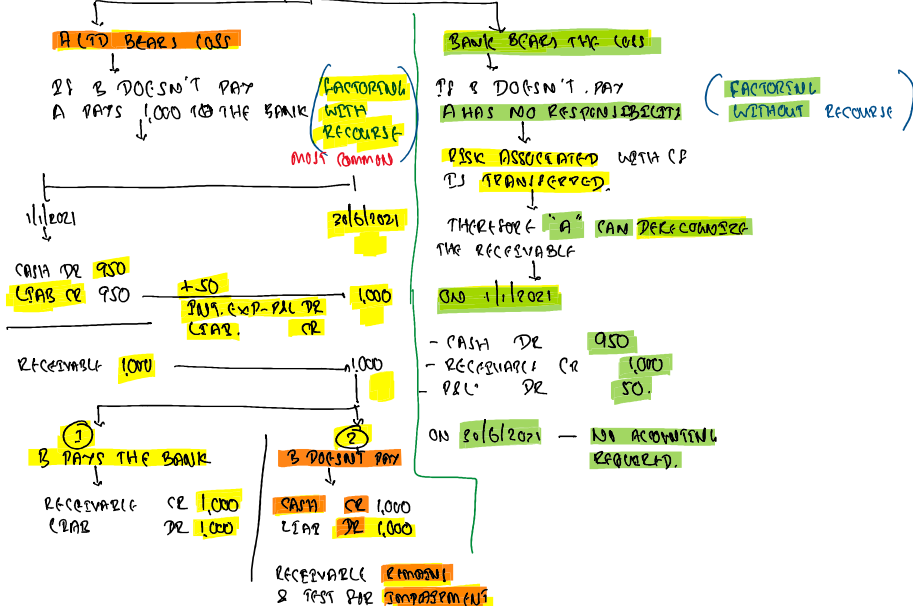 A LTD BEARS LOSS
IF B DOESN'T PAY
A PAYS 1,000 TO THE BANK
(FACTORING
WITH
RECOURSE)
MOST COMMON
1/1/2021
30/6/2021
CASH DR 950
LIAB CR 950
+50
INT. EXP-P&L DR
LIAB. CR
1,000
RECEIVABLE 1,000
1,000
1
B PAYS THE BANK
RECEIVABLE CR 1,000
LIAB DR 1,000
2
B DOESN'T PAY
CASH CR 1,000
LIAB DR 1,000
RECEIVABLE REMAINS
& TEST FOR IMPAIRMENT
BANK BEARS THE LOSS
IF B DOESN'T PAY
A HAS NO RESPONSIBILITY
(FACTORING
WITHOUT RECOURSE)
RISK ASSOCIATED WITH CF
IS TRANSFERRED.
THEREFORE "A" CAN DERECOGNIZE
THE RECEIVABLE
ON 1/1/2021
- CASH DR 950
- RECEIVABLE CR 1,000
- P&L DR 50.
ON 30/6/2021 — NO ACCOUNTING
REQUIRED.